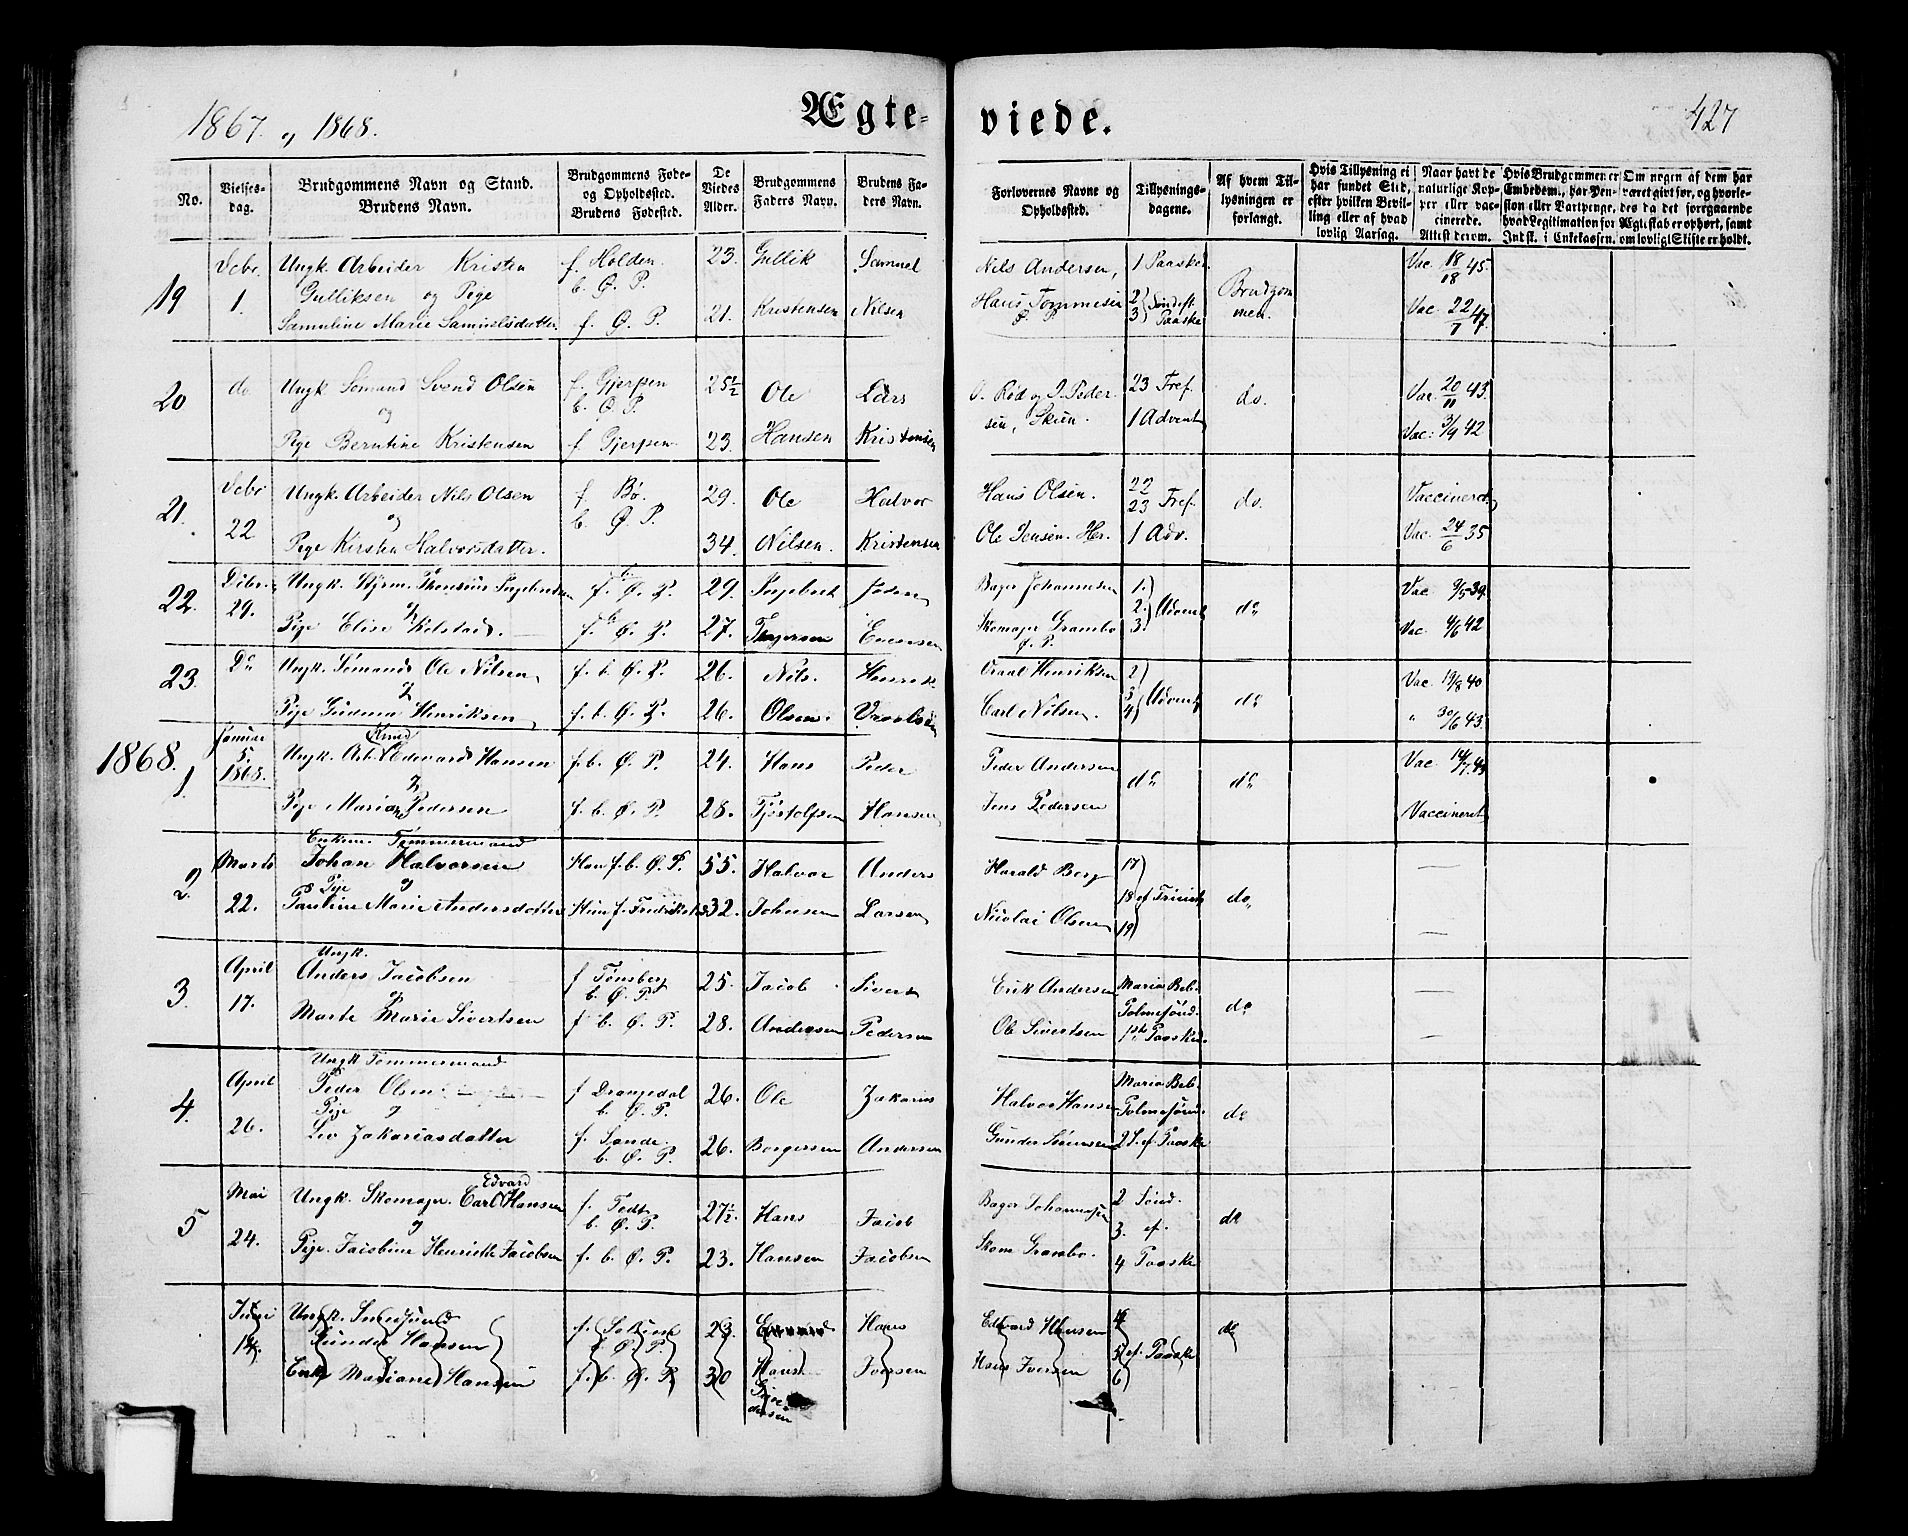 1867. og 1868.
Ægte-
viede.
427
No.
Vielses-
dag.
Brudgommens Navn og Stand.
Brudens Navn.
Brudgommens Føde-
og Opholdssted.
Brudens Fødested.
De
Viedes
Alder.
Brudgommens
Faders Navn.
Brudens Fa-
ders Navn.
Forlovernes Navne og
Opholdssted.
Tillysnings-
dagene.
Af hvem Til-
lysningen er
forlangt.
Hvis Tillysning ei
har fundet Sted,
efter hvilken Bevil-
ling eller af hvad
lovlig Aarsag.
Naar havt de
naturlige Kop-
per eller vac-
cinerede.
Attest derom.
Hvis Brudgommen er
Embedsm., har Pen-
sion eller Vartpenge,
hvad Legitimation for
Indsk. i Enkekassen.
Om nogen af dem har
været gift før, og hvorle-
des da det foregaaende
Ægteskab er ophørt, samt
om lovligt Skifte er holdt.
19 1. Ungk. Arbeider Kristen f. Holden. 23. Gullik Samuel Nils Andersen, 1 Paaske. Vac. 18/18 45.
Gulliksen og Pige b. Ø. P. Brudgom
Samuline Marie Samuelsdatter. f. Ø. P. 21. Kristensen Nilsen Hans Tommesen 2) Søndeft. men. Vac. 22/7 47.
Ø. P. 3) Paaske
20 do Ungk. Sømand Svend Olsen f. Gjerpen 25½ Ole Lars O. Rød og I. Peder- 23 Tref. do. Vac. 20/11 43.
og b. Ø. P.
Pige Berntine Kristensen f. Gjerpen. 23. Hansen Kristensen sen, Skien. 1 Advent Vac. 3/9 42
21. 22 Ungk. Arbeider Nils Olsen f. Bø. 29. Ole Halvor Hans Olsen. 22 do. Vaccineret
og b. Ø. P. 23 Tref.
Pige Kirsten Halvorsdatter. 34. Nilsen. Kristensen Ole Jensen. Her. 1 Adv. Vac. 24/6 35
22. Dcbr. 29. Ungk. Styrm. f. b. Ø. P. 29. Ingebret Bager Johannesen 1.) do Vac. 9/5 39.
og 2.) Advent
Pige Elise Kolstad. f. b. Ø. P. 27. Evensen Skomager Grambo 3.) Vac. 4/6 42
Ø. P.
23. Do Ungk. Sømand Ole Nilsen f. b. Ø. P. 26. Nils. Henrik Vraal Henriksen 2) do Vac. 19/8 40
og 3) Advent
Pige Gudma Henriksen f. b. Ø. P. 26. Olsen. Vraalsen Carl Nilsen. 4) " 30/6 43.
1868. 1 Januar 5. 1868. Knud
Ungk. Arb. Edevard Hansen f. b. Ø. P. 24. Hans Peder Peder Andersen do do Vac. 14/7 43
og
Pige Mariane Pedersen f. b. Ø. P. 28. Tjostolfsen Hansen Jens Pedersen Vaccineret
2 Marts 22. Enkem. Tømmermand
Johan Halvorsen Han f. b. Ø. P. 55. Halvor Anders Harald Berg 17) do, —
Pige og 18) ef Trinit
Pauline Marie Andersdatter Hun f. Fredrikst 32. Johnsen Larsen Nicolai Olsen 19) —
3. April 17. Ungk.
Anders Jacobsen f Tønsberg 25. Jacob Sivert Erik Andersen Maria Beb. do —
og b. Ø. P. Palmesønd.
Marte Marie Sivertsen f b. Ø. P. 28. Andersen Pedersen Ole Sivertsen 1ste Paasked. —
4. April 26. Ungk Tømmermand
Peder Olsen f Drangedal 26. Ole Zakarias Halvor Hansen Maria Beb. do
Pige og b. Ø. P. Palmesønd.
Liv Zakariasdatter f. Sande. 26. Borgersen Andersen Gunder Sørensen 2 S. ef. Paaske
b. Ø. P.
5 Mai 24. Edvard
Ungk. Skomager Carl Hansen f. 27½. Hans Jacob Bager Johannesen 2 Sønd. do
og b. Ø. P. 3. ef.
Pige Jacobine Henriette Jacobsen f. b. Ø. P. 23. Hansen Jacobsen Skom Grambo. 4 Paaske
Juni 14. Ungk.
Gunder Hansen b. Ø. P. 23. Hans Edvard Hansen 4 do
og 5 ef. Paaske
Enke Mariane Hansen f. b. Ø. P. 30 Hans Iversen Hans Iversen 6